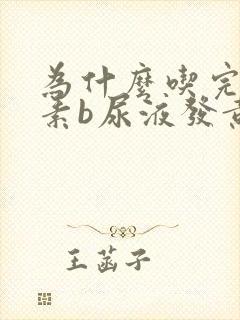 為什麼喫完
素b尿液發
王菡子